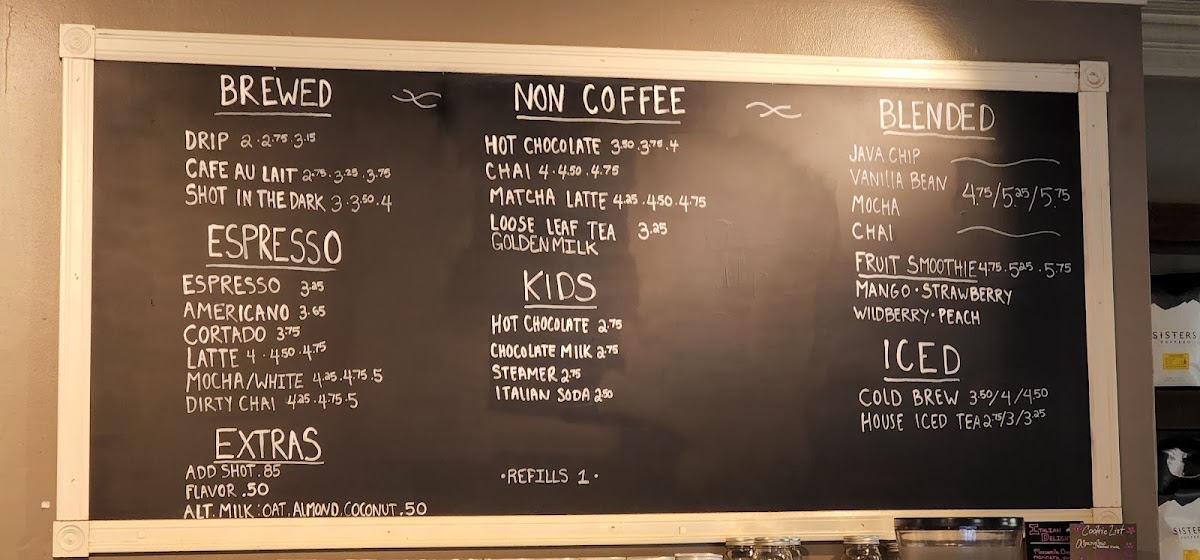 BREWED
DRIP 2 · 2.75 · 3.15
CAFE AU LAIT 2.75 · 3.25 · 3.75
SHOT IN THE DARK 3 · 3.50 · 4
ESPRESSO
ESPRESSO 3.25
AMERICANO 3.65
CORTADO 3.75
LATTE 4 · 4.50 · 4.75
MOCHA/WHITE 4.25 · 4.75 · 5
DIRTY CHAI 4.25 · 4.75 · 5
EXTRAS
ADD SHOT .85
FLAVOR .50
ALT. MILK: OAT. ALMOND. COCONUT .50
NON COFFEE
HOT CHOCOLATE 3.50 · 3.75 · 4
CHAI 4 · 4.50 · 4.75
MATCHA LATTE 4.25 · 4.50 · 4.75
LOOSE LEAF TEA 3.25
GOLDEN MILK
KIDS
HOT CHOCOLATE 2.75
CHOCOLATE MILK 2.75
STEAMER 2.75
ITALIAN SODA 2.50
· REFILLS 1 ·
BLENDED
JAVA CHIP
VANILLA BEAN
4.75/5.25/5.75
MOCHA
CHAI
FRUIT SMOOTHIE 4.75 · 5.25 · 5.75
MANGO · STRAWBERRY
WILDBERRY · PEACH
ICED
COLD BREW 3.50/4/4.50
HOUSE ICED TEA 2.75/3/3.25
SISTERS
COFFEE
SISTERS
ITALIAN
DELIGHT
Cookie List